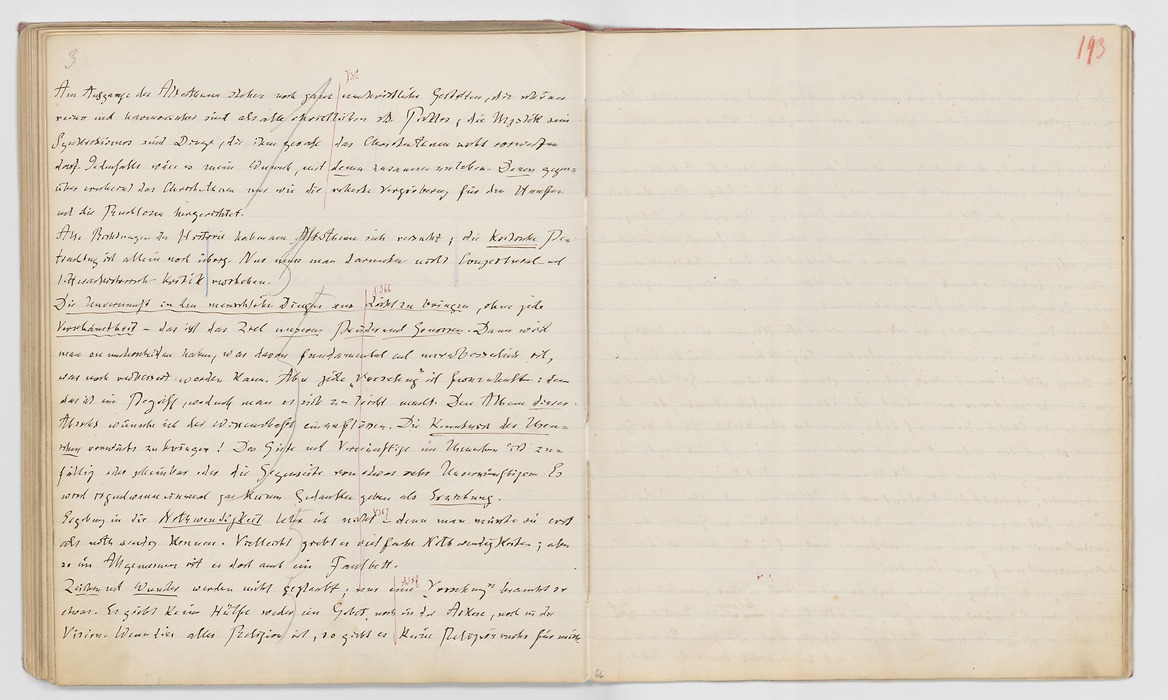 3
193
Am Ausgange des Alterthums stehen noch ganz unchristliche Gestalten, die schöner
reiner und harmonischer sind als alle christlichen: zB. Proklos, die Mystik sein
Synkretismus sind Dinge, die ihm gerade das Christenthum nicht vorwerfen
darf. Jedenfalls wäre es mein Wunsch, mit denen zusammen zu leben. Denen gegen-
über erscheint das Christenthum nur wie die roheste Vergröberung für den Haufen
und die Ruchlosen hergerichtet.
Alle Richtungen der Historie haben am Alterthum sich versucht; die kritische Be-
trachtung ist allein noch übrig. Nur muss man darunter nicht Conjectural- und
litterarhistorische Kritik verstehen.
1366
Die Unvernunft in den menschlichen Dingen ans Licht zu bringen, ohne jede
Verschämtheit – das ist das Ziel unserer Brüder und Genossen. Dann wird
man zu unterscheiden haben, was davon fundamental und unverbesserlich ist,
was noch verbessert werden kann. Aber jede „Vorsehung" ist fernzuhalten: denn
das ist ein Begriff, wodurch man es sich zu leicht macht. Den Athem dieser
Absicht wünsche ich der Wissenschaft einzuflössen. Die Kenntniss des Men-
schen vorwärts zu bringen! Das Gute und Vernünftige im Menschen ist zu-
fällig oder scheinbar oder die Gegenseite von etwas sehr Unvernünftigem. Es
wird irgendwann einmal gar keinen Gedanken geben als Erziehung.
Ergebung in die Nothwendigkeit lehre ich nicht – denn man müsste sie erst
als nothwendig kennen. Vielleicht giebt es vielfache Nothwendigkeiten; aber
so im Allgemeinen ist es doch auch ein Faulbett.
Zeichen und Wunder werden nicht geglaubt; nur eine „Vorsehung" braucht so
etwas. Es giebt keine Hülfe weder im Gebet, noch in der Askese, noch in der
Vision. Wenn dies alles Religion ist, so giebt es keine Religion mehr für mich.
66